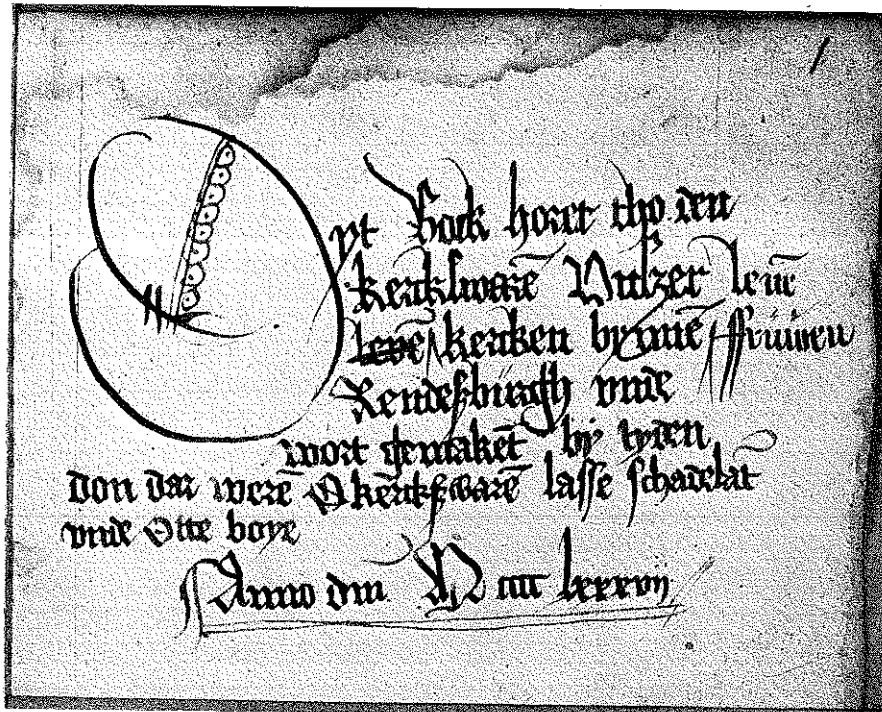 Dyt Bock horet tho den
kerckswarē Unszer leuē
kercken bynnē ffruwen
Rendeßburgh vnde
wort gemaket by tyden
don dar werē kerckswarē lasse schadelāt
vnde Otte boye
Anno dm̄ M cccc lxxxvij